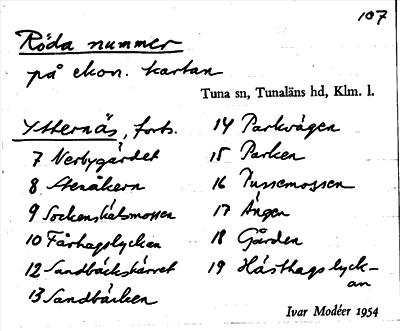 107
Röda nummer
på ekon. kartan
Tuna sn, Tunaläns hd, Klm. l.
Ytternäs, forts.
7 Nerbygärdet
8 Stenåkern
9 Sockenskatsmossen
10 Fårhagslyckan
12 Sandbäckskärret
13 Sandbäcken
14 Parkvägen
15 Parken
16 Pussemossen
17 Ängen
18 Gården
19 Hästhagslyck-
an
Ivar Modéer 1954